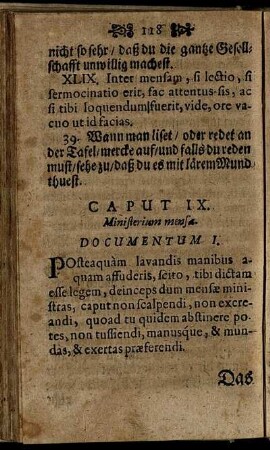 118
nicht so sehr / daß du die gantze Gesell-
schafft unwillig machest.
XLIX. Inter mensam, si lectio, si
sermocinatio erit, fac attentus sis, ac
si tibi loquendum fuerit, vide, ore va-
cuo ut id facias.
39. Wann man liset / oder redet an
der Tafel / mercke auf / und falls du reden
must / sehe zu / daß du es mit lärem Mund
thuest.
CAPUT IX.
Ministerium mensæ.
DOCUMENTUM I.
POsteaquàm lavandis manibus a-
quam affuderis, scito, tibi dictam
esse legem, deinceps dum mensæ mini-
stras, caput non scalpendi, non excre-
andi, quoad tu quidem abstinere po-
tes, non tussiendi, manusque, & mun-
das, & exertas præferendi.
Das